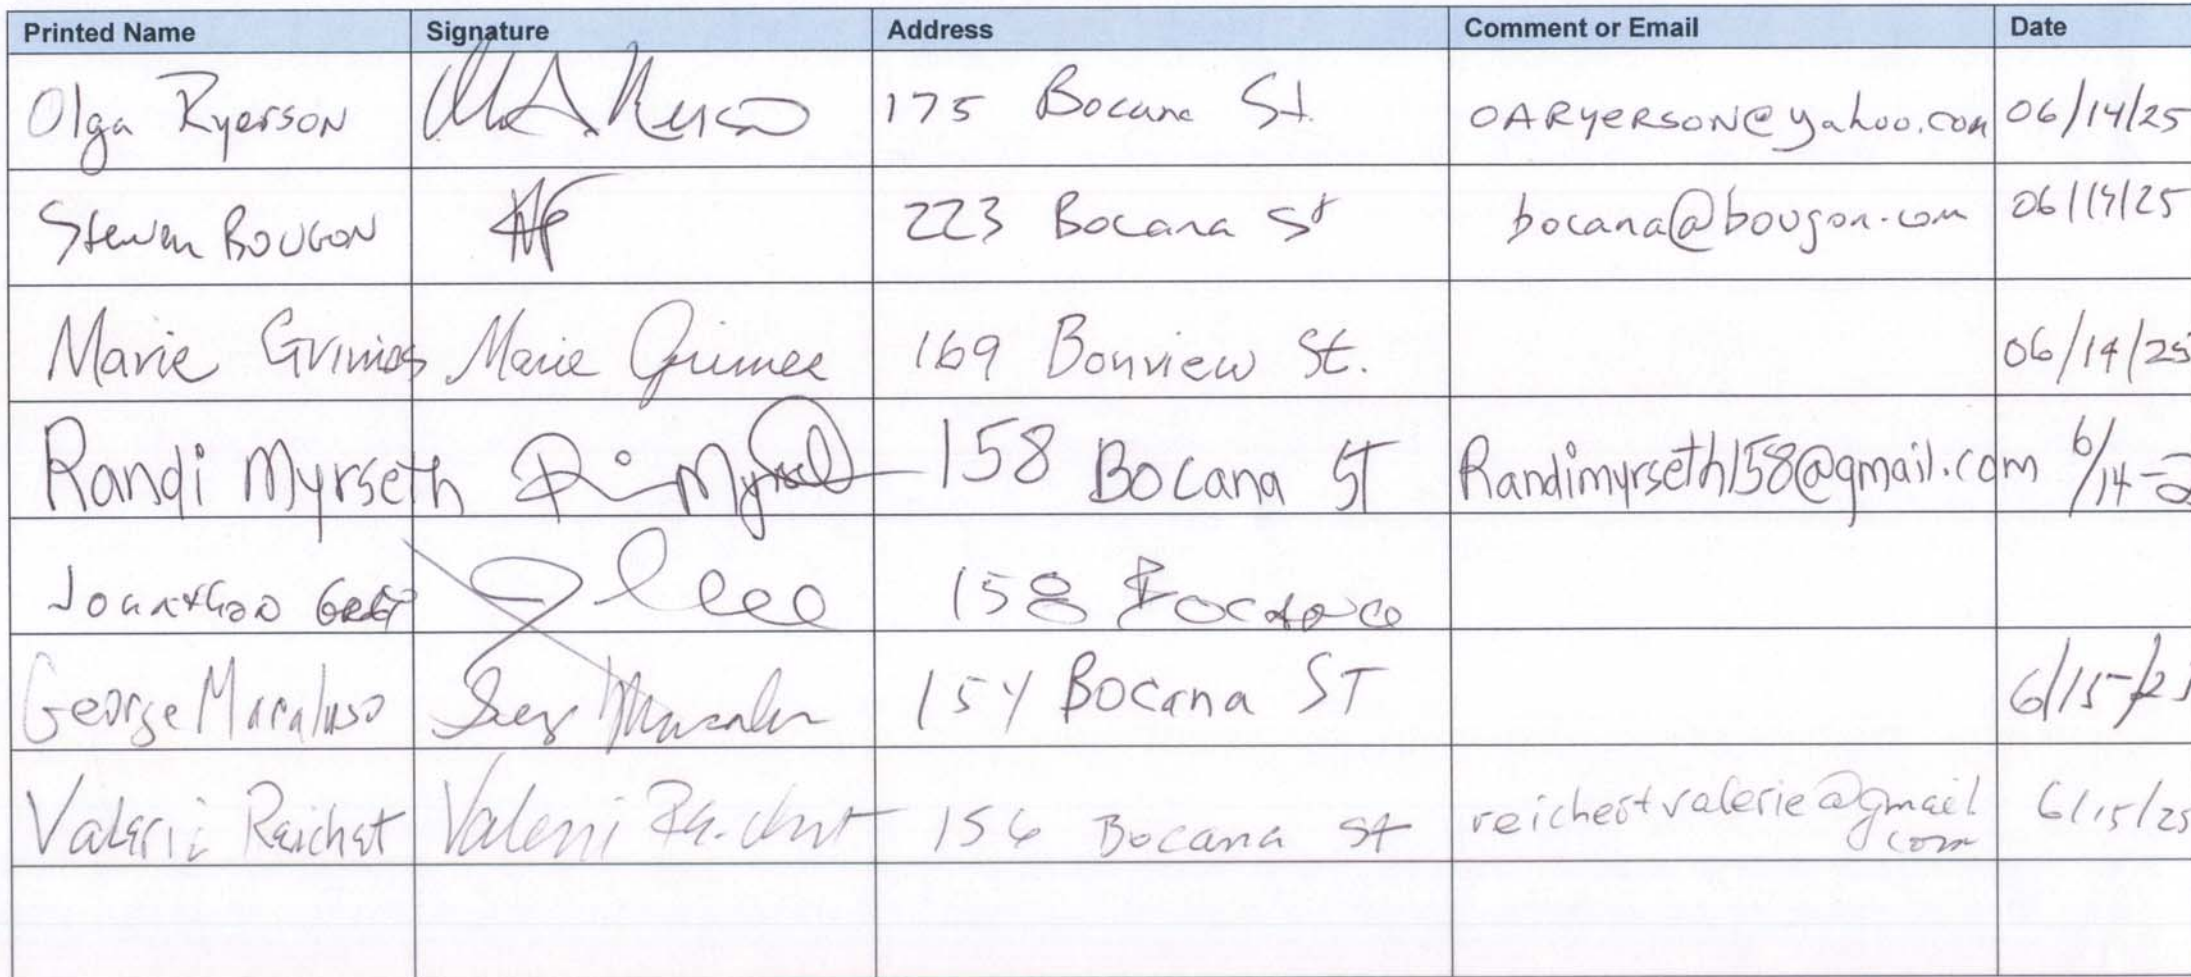 Printed Name Signature Address Comment or Email Date
Olga Ryerson 175 Bocana St. OARYERSON@yahoo.com 06/14/25
Steven BOUGON 223 Bocana St bocana@bougon.com 06/14/25
Marie Grimes Marie Grimes 169 Bonview St. 06/14/25
Randi Myrseth 158 Bocana ST Randimyrseth158@gmail.com 6/14-2
Jonathan 158 Bocana
George Macaluso 154 Bocana ST 6/15/25
Valerie Reichert Valerie Reichert 156 Bocana St reichertvalerie@gmail 6/15/25
com